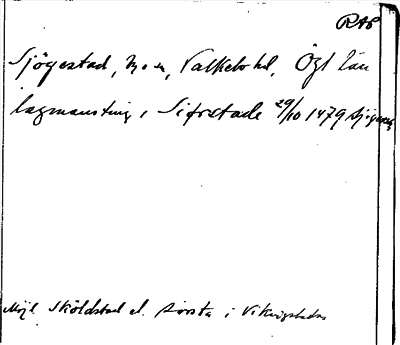 RAP
Sjögestad, by o sn, Valkebo hd, Ögl län
lagmansting i Sifrstade 29/10 1479
Möjl Sköldstad el. Sörsta i Vikingstads